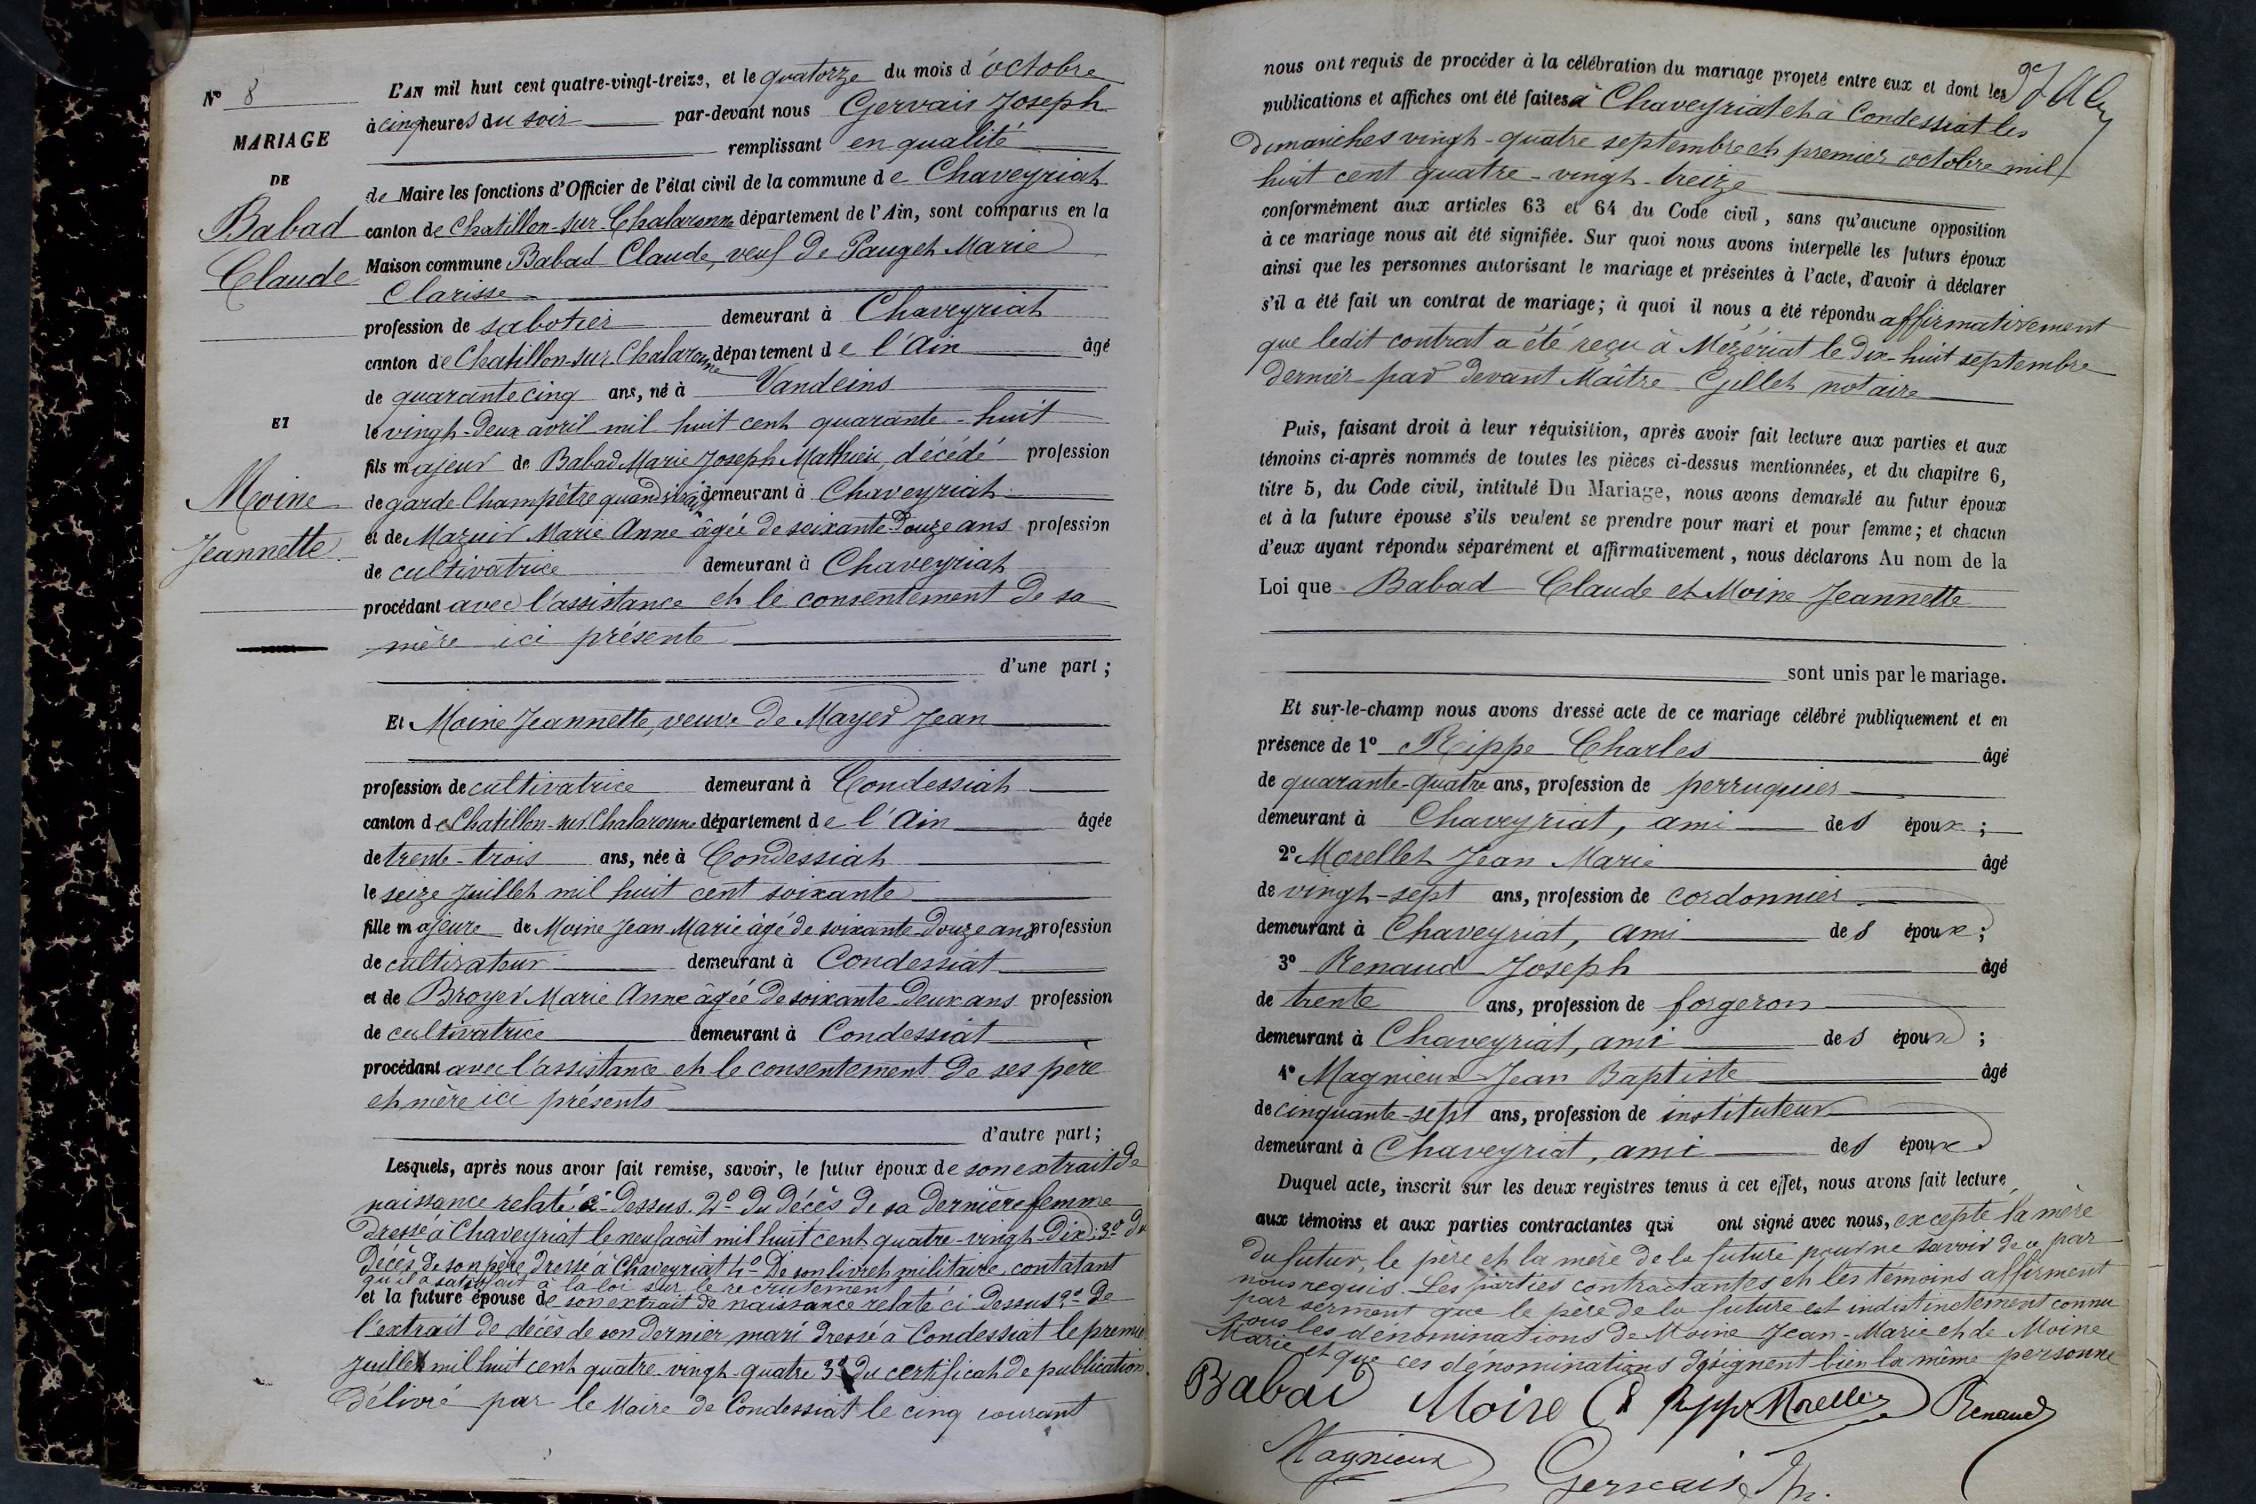 N° 8
MARIAGE
DE
Babad
Claude
ET
Moine
Jeannette
L'AN mil huit cent quatre-vingt-treize, et le quatorze du mois d'octobre
à cinq heures du soir par-devant nous Gervais Joseph
remplissant en qualité
de Maire les fonctions d'Officier de l'état civil de la commune de Chaveyriat
canton de Chatillon-sur-Chalaronne département de l'Ain, sont comparus en la
Maison commune Babad Claude, veuf de Pauget Marie
Clarisse
profession de sabotier demeurant à Chaveyriat
canton de Chatillon-sur-Chalaronne département de l'Ain âgé
de quarante cinq ans, né à Vandeins
le vingt-deux avril mil huit cent quarante-huit
fils majeur de Babad Marie Joseph Mathieu, décédé profession
de garde-Champêtre quand vivait demeurant à Chaveyriat
et de Mazuir Marie Anne âgée de soixante-douze ans profession
de cultivatrice demeurant à Chaveyriat
procédant avec l'assistance et le consentement de sa
mère ici présente
d'une part ;
Et Moine Jeannette, veuve de Mayer Jean
profession de cultivatrice demeurant à Condessiat
canton de Chatillon-sur-Chalaronne département de l'Ain âgée
de trente-trois ans, née à Condessiat
le seize Juillet mil huit cent soixante
fille majeure de Moine Jean-Marie âgé de soixante-douze ans profession
de cultivateur demeurant à Condessiat
et de Broyer Marie Anne âgée de soixante-deux ans profession
de cultivatrice demeurant à Condessiat
procédant avec l'assistance et le consentement de ses père
et mère ici présents
d'autre part ;
Lesquels, après nous avoir fait remise, savoir, le futur époux de son extrait de
naissance relaté ci-dessus. 2° du décès de sa dernière femme
dressé à Chaveyriat le neuf août mil huit cent quatre-vingt-dix ; 3° du
décès de son père dressé à Chaveyriat 4° De son livret militaire, contatant
qu'il a satisfait à la loi sur le recrutement
et la future épouse de son extrait de naissance relaté ci dessus 2° de
l'extrait de décès de son dernier mari dressé à Condessiat le premier
Juillet mil huit cent quatre vingt-quatre 3° du certificat de publication
délivré par le Maire de Condessiat le cinq courant
nous ont requis de procéder à la célébration du mariage projeté entre eux et dont les
publications et affiches ont été faites à Chaveyriat et à Condessiat les
dimanches vingt-quatre septembre et premier octobre mil
huit cent quatre-vingt-treize
conformément aux articles 63 et 64 du Code civil, sans qu'aucune opposition
à ce mariage nous ait été signifiée. Sur quoi nous avons interpellé les futurs époux
ainsi que les personnes autorisant le mariage et présentes à l'acte, d'avoir à déclarer
s'il a été fait un contrat de mariage ; à quoi il nous a été répondu affirmativement
que ledit contrat a été reçu à Mézériat le dix-huit septembre
dernier par devant Maître Gillet notaire
Puis, faisant droit à leur réquisition, après avoir fait lecture aux parties et aux
témoins ci-après nommés de toutes les pièces ci-dessus mentionnées, et du chapitre 6,
titre 5, du Code civil, intitulé Du Mariage, nous avons demandé au futur époux
et à la future épouse s'ils veulent se prendre pour mari et pour femme ; et chacun
d'eux ayant répondu séparément et affirmativement, nous déclarons Au nom de la
Loi que Babad Claude et Moine Jeannette
sont unis par le mariage.
Et sur-le-champ nous avons dressé acte de ce mariage célébré publiquement et en
présence de 1° Rippe Charles âgé
de quarante-quatre ans, profession de perruquier
demeurant à Chaveyriat, ami des époux ;
2° Morellet Jean Marie âgé
de vingt-sept ans, profession de cordonnier
demeurant à Chaveyriat, ami des époux ;
3° Renaud Joseph âgé
de trente ans, profession de forgeron
demeurant à Chaveyriat, ami des époux ;
4° Magnieux Jean Baptiste âgé
de cinquante-sept ans, profession de instituteur
demeurant à Chaveyriat, ami des époux
Duquel acte, inscrit sur les deux registres tenus à cet effet, nous avons fait lecture
aux témoins et aux parties contractantes qui ont signé avec nous, excepté la mère
du futur, le père et la mère de la future pour ne savoir de ce par
nous requis. Les parties contractantes et les témoins affirment
par serment que le père de la future est indistinctement connu
sous les dénominations de Moine Jean-Marie et de Moine
Marie et que ces dénominations désignent bien la même personne
Babad Moine C Rippe Morellet Renaud
Magnieux Gervais Jh.